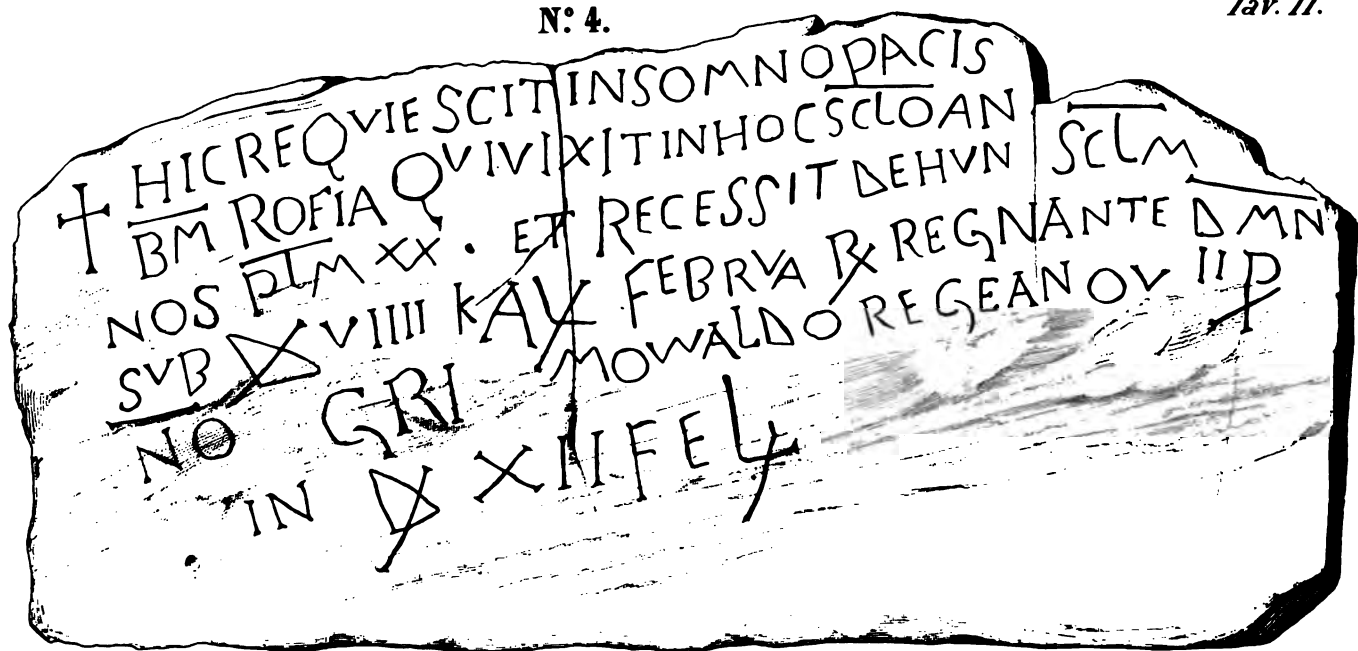 N.º 4.
Tav. II.
✝ HICREQVIESCIT INSOMNO PACIS
BM ROFIA QVIVIXIT INHOC SCLO AN
NOS PLM XX · ET RECESSIT DEHVN SCLM
SVB D VIIII KAL FEBRVA R REGNANTE DMN
NO GRI MOWALDO REGEANOV IIP
IN D XII FEL